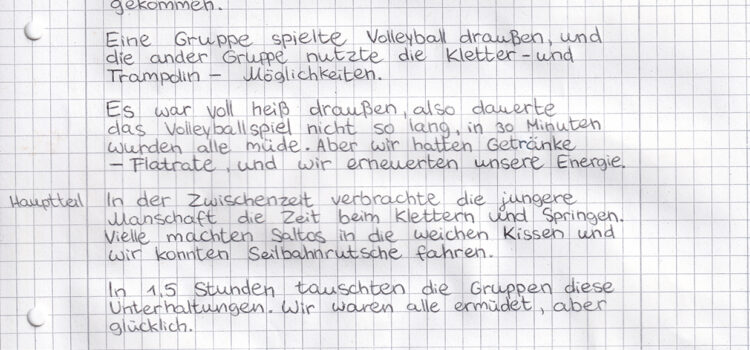 gekommen.
Eine Gruppe spielte Volleyball draußen, und
die ander Gruppe nutzte die Kletter-und
Trampolin - Möglichkeiten.
Es war voll heiß draußen, also dauerte
das Volleyballspiel nicht so lang, in 30 Minuten
wurden alle müde. Aber wir hatten Getränke
- Flatrate, und wir erneuerten unsere Energie.
Hauptteil In der Zwischenzeit verbrachte die jungere
Manschaft die Zeit beim Klettern und Springen.
Vielle machten Saltos in die weichen Kissen und
wir konnten Seilbahnrutsche fahren.
In 1,5 Stunden tauschten die Gruppen diese
Unterhaltungen. Wir waren alle ermüdet, aber
glücklich.